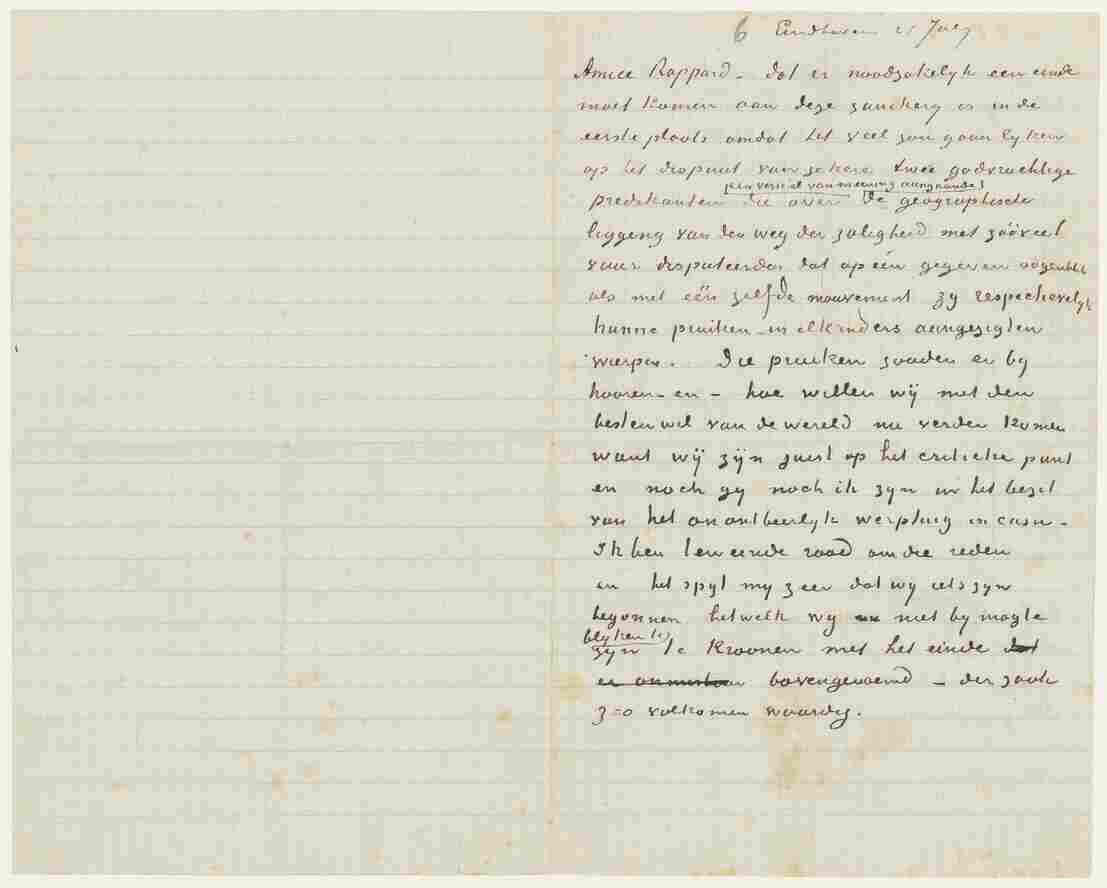 6 Eindhoven 21 July
Amice Rappard – dat er noodzakelyk een einde
moet komen aan deze zankery is in de
eerste plaats omdat het veel zou gaan lyken
op het dispuut van zekere twee godvruchtige
(een verschil van meening aangaande)
predikanten die over de geographische
ligging van den weg der zaligheid met zóóveel
vuur disputeerden dat op één gegeven oogenblik
als met één zelfde mouvement zy respectievelyk
hunne pruiken – in elkanders aangezigten
wierpen. Die pruiken zouden er by
hooren – en – hoe willen wij met den
besten wil van de wereld nu verder komen
want wij zijn juist op het critieke punt
en noch gy noch ik zyn in het bezit
van het onontbeerlyk werptuig in casu –
Ik ben ten einde raad om die reden
en het spyt my zeer dat wy iets zyn
begonnen hetwelk wy niet by magte
blyken te
zyn te kroonen met het einde dat
er bovengenoemd – der zaak
zoo volkomen waardig.